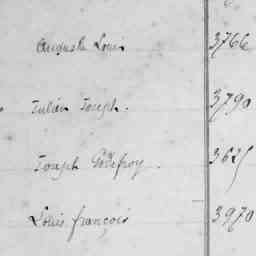 Auguste Louis 3766
Julien Joseph. 3790
Joseph Godefroy. 3625
Louis françois 3970